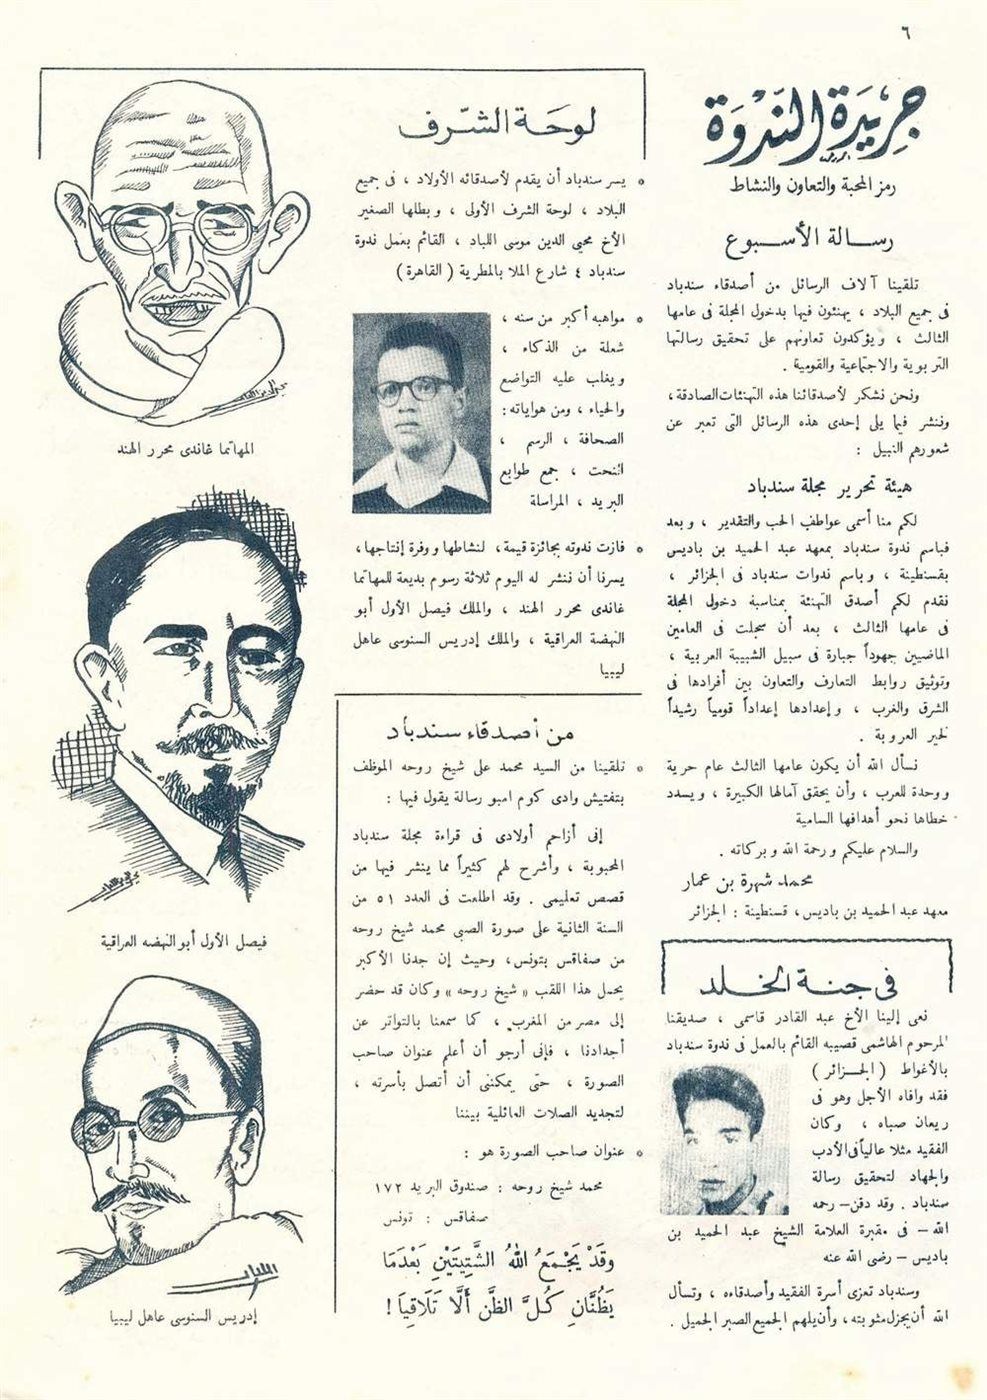 ٦
جَرِيدَة النَّدْوَة
رمز المحبة والتعاون والنشاط
رسالة الأسبوع
تلقينا آلاف الرسائل من أصدقاء سندباد
فى جميع البلاد ، يهنئون فيها بدخول المجلة فى عامها
الثالث ، ويؤكدون تعاونهم على تحقيق رسالتها
التربوية والاجتماعية والقومية .
ونحن نشكر لأصدقائنا هذه التهنئات الصادقة ،
وننشر فيما يلى إحدى هذه الرسائل التى تعبر عن
شعورهم النبيل :
هيئة تحرير مجلة سندباد
لكم منا أسمى عواطف الحب والتقدير ، وبعد
فباسم ندوة سندباد بمعهد عبد الحميد بن باديس
بقسنطينة ، وباسم ندوات سندباد فى الجزائر ،
نقدم لكم أصدق التهنئة بمناسبة دخول المجلة
فى عامها الثالث ، بعد أن سجلت فى العامين
الماضيين جهوداً جبارة فى سبيل الشبيبة العربية ،
وتوثيق روابط التعارف والتعاون بين أفرادها فى
الشرق والغرب ، وإعدادها إعداداً قومياً رشيداً
لخير العروبة .
نسأل الله أن يكون عامها الثالث عام حرية
ووحدة للعرب ، وأن يحقق آمالها الكبيرة ، ويسدد
خطاها نحو أهدافها السامية
والسلام عليكم ورحمة الله وبركاته .
محمد شهرة بن عمار
معهد عبد الحميد بن باديس ، قسنطينة : الجزائر
فى جنة الخلد
نعى إلينا الأخ عبد القادر قاسمى ، صديقنا
المرحوم الهاشمى قصيبه القائم بالعمل فى ندوة سندباد
بالأغواط ( الجزائر )
فقد وافاه الأجل وهو فى
ريعان صباه ، وكان
الفقيد مثلا عالياً فى الأدب
والجهاد لتحقيق رسالة
سندباد . وقد دفن – رحمه
الله – فى مقبرة العلامة الشيخ عبد الحميد بن
باديس – رضى الله عنه
وسندباد تعزى أسرة الفقيد وأصدقاءه ، وتسأل
الله أن يجزل مثوبته ، وأن يلهم الجميع الصبر الجميل .
لوحة الشرف
• يسر سندباد أن يقدم لأصدقائه الأولاد ، فى جميع
البلاد ، لوحة الشرف الأولى ، وبطلها الصغير
الأخ محيى الدين موسى اللباد ، القائم بعمل ندوة
سندباد ٤ شارع الملا بالمطرية ( القاهرة )
• مواهبه أكبر من سنه ،
شعلة من الذكاء ،
ويغلب عليه التواضع
والحياء ، ومن هواياته :
الصحافة ، الرسم ،
النحت ، جمع طوابع
البريد ، المراسلة
• فازت ندوته بجائزة قيمة ، لنشاطها ووفرة إنتاجها ،
يسرنا أن ننشر له اليوم ثلاثة رسوم بديعة للمهاتما
غاندى محرر الهند ، والملك فيصل الأول أبو
النهضة العراقية ، والملك إدريس السنوسى عاهل
ليبيا
من أصدقاء سندباد
• تلقينا من السيد محمد على شيخ روحه الموظف
بتفتيش وادى كوم امبو رسالة يقول فيها :
إنى أزاحم أولادى فى قراءة مجلة سندباد
المحبوبة ، وأشرح لهم كثيراً مما ينشر فيها من
قصص تعليمى . وقد اطلعت فى العدد ٥١ من
السنة الثانية على صورة الصبى محمد شيخ روحه
من صفاقس بتونس ، وحيث إن جدنا الأكبر
يحمل هذا اللقب « شيخ روحه » وكان قد حضر
إلى مصر من المغرب ، كما سمعنا بالتواتر عن
أجدادنا ، فإنى أرجو أن أعلم عنوان صاحب
الصورة ، حتى يمكننى أن أتصل بأسرته ،
لتجديد الصلات العائلية بيننا
• عنوان صاحب الصورة هو :
محمد شيخ روحه : صندوق البريد ١٧٢
صفاقس : تونس
وَقَدْ يَجْمَعُ اللهُ الشَّتِيتَيْنِ بَعْدَمَا
يَظُنَّانِ كُلَّ الظَّنِّ أَلَّا تَلَاقِيَا !
المهاتما غاندى محرر الهند
فيصل الأول أبو النهضه العراقية
اللباد
إدريس السنوسى عاهل ليبيا